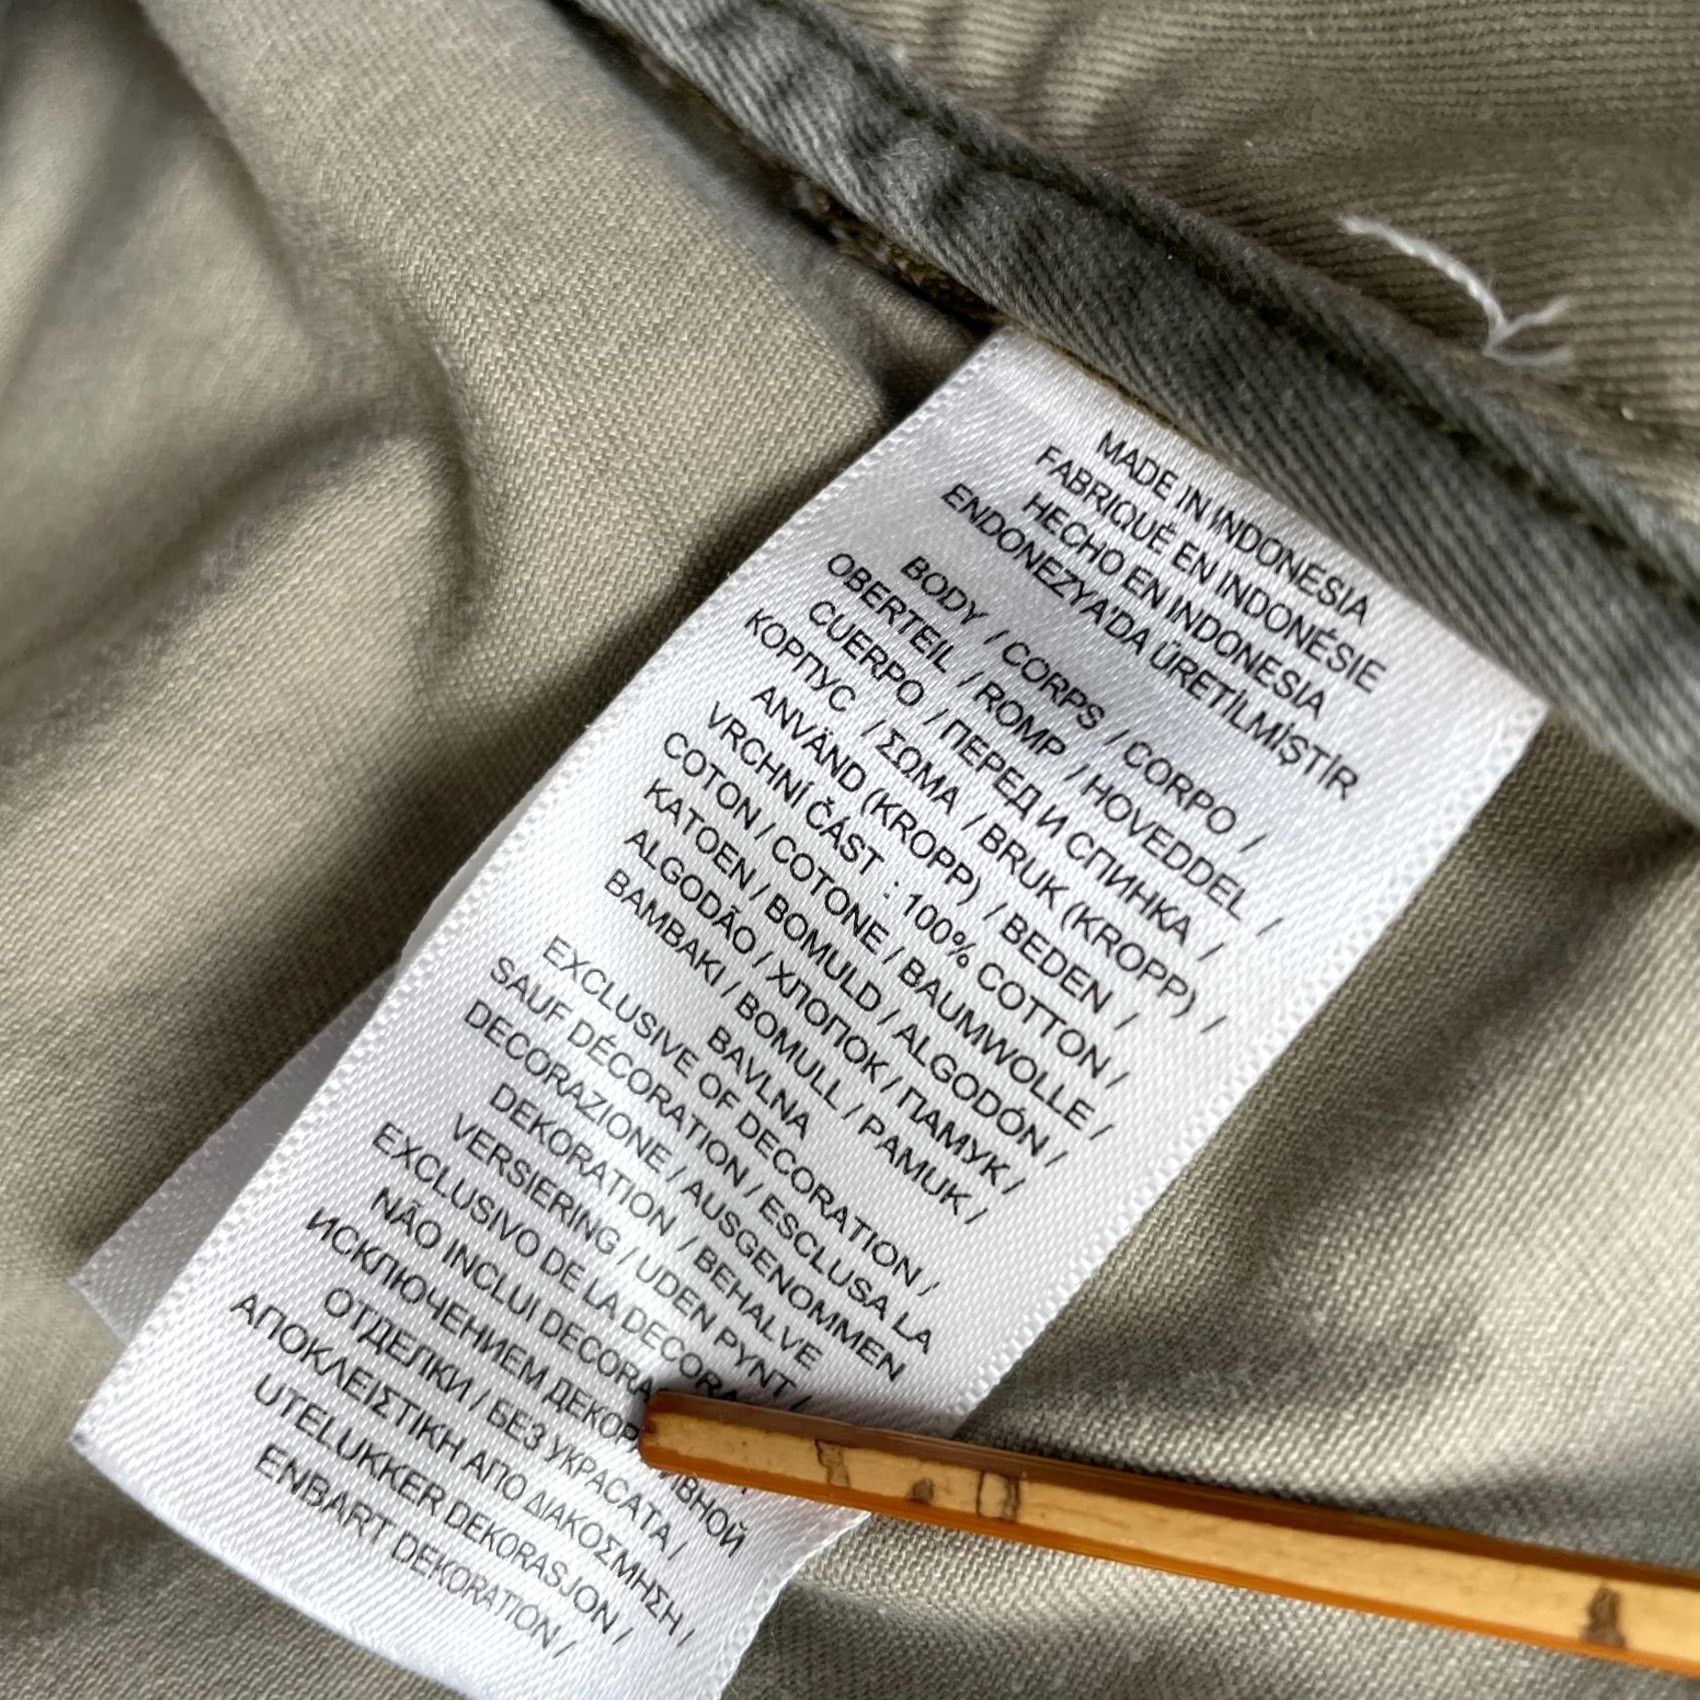 MADE IN INDONESIA
FABRIQUÉ EN INDONÉSIE
HECHO EN INDONESIA
ENDONEZYA'DA ÜRETİLMİŞTİR
BODY / CORPS / CORPO /
OBERTEIL / ROMP / HOVEDDEL /
CUERPO / ПЕРЕД И СПИНКА /
КОРПУС / ΣΩΜΑ / BRUK (KROPP) /
ANVÄND (KROPP) / BEDEN /
VRCHNÍ ČÁST : 100% COTTON /
COTON / COTONE / BAUMWOLLE /
KATOEN / BOMULD / ALGODÓN /
ALGODÃO / ХЛОПОК / ПАМУК /
BAMBAKI / BOMULL / PAMUK /
BAVLNA
EXCLUSIVE OF DECORATION /
SAUF DÉCORATION / ESCLUSA LA
DECORAZIONE / AUSGENOMMEN
DEKORATION / BEHALVE
VERSIERING / UDEN PYNT /
EXCLUSIVO DE LA
NÃO INCLUI
ИСКЛЮЧЕНИЕМ
ОТДЕЛКИ / БЕЗ УКРАСАТА /
ΑΠΟΚΛΕΙΣΤΙΚΗ ΑΠΟ ΔΙΑΚΟΣΜΗΣΗ /
UTELUKKER DEKORASJON /
ENBART DEKORATION /